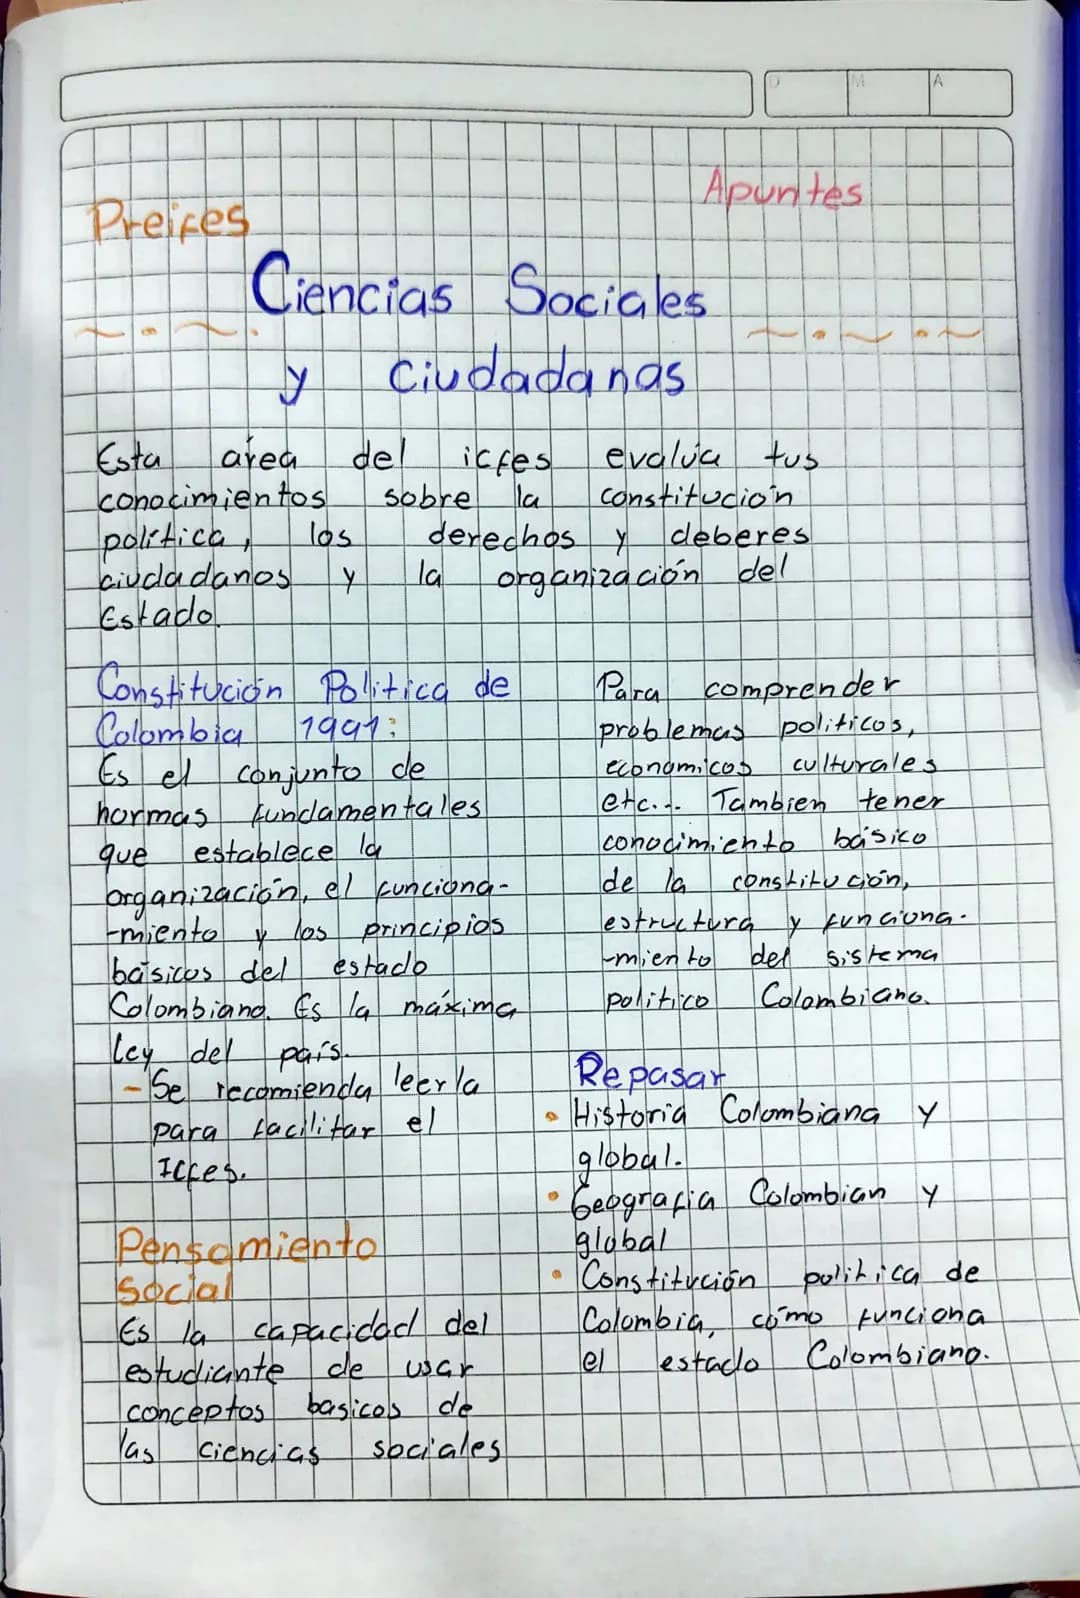 D M A
Apuntes
Preicfes
Ciencias Sociales
y ciudadanas
Esta área del icfes evalúa tus
conocimientos sobre la constitución
política, los derechos y deberes
ciudadanos y la organización del
Estado.
Constitución Politica de
Colombia 1991:
Es el conjunto de
normas fundamentales
que establece la
organización, el funciona-
-miento y los principios
básicos del estado
Colombiano. Es la máxima
Ley del país.
- Se recomienda leerla
para facilitar el
Icfes.
Pensamiento
social
Es la capacidad del
estudiante de usar
conceptos basicos de
las ciencias sociales
Para comprender
problemas politicos,
economicos culturales
etc... Tambien tener
conocimiento básico
de la constitución,
estructura y funciona-
-miento del sistema
politico Colombiano.
Repasar
• Historia Colombiana y
global.
• Geografia Colombian y
global
• Constitución politica de
Colombia, cómo funciona
el estado Colombiano.